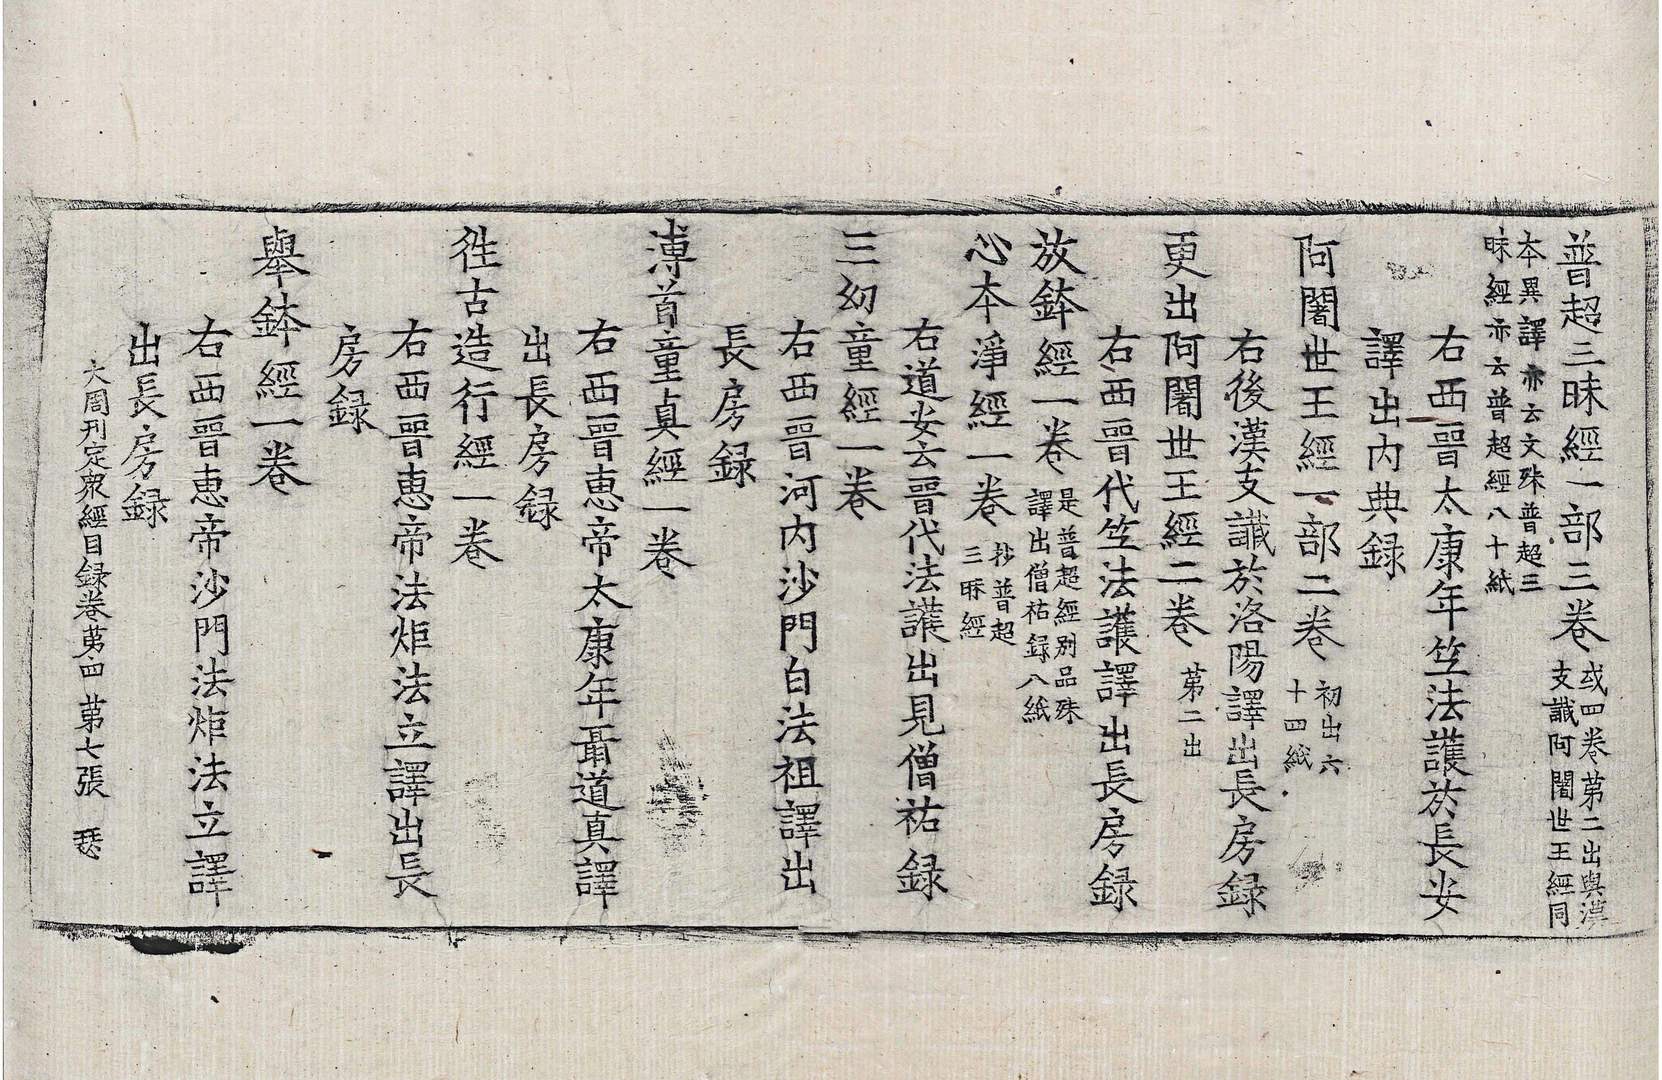 普超三昧經一部三卷 或四卷第二出與漢
支讖阿闍世王經同
本異譯亦云文殊普超三
昧經亦云普超經八十紙
右西晉太康年竺法護於長安
譯出內典録
阿闍世王經一部二卷 初出六
十四紙
右後漢支讖於洛陽譯出長房録
更出阿闍世王經二卷 第二出
右西晉代竺法護譯出長房録
放鉢經一卷 是普超經別品殊
譯出僧祐録八紙
心本淨經一卷 抄普超
三昧經
右道安云晉代法護出見僧祐録
三幼童經一卷
右西晉河內沙門白法祖譯出
長房録
溥首童真經一卷
右西晉惠帝太康年聶道真譯
出長房録
徃古造行經一卷
右西晉惠帝法炬法立譯出長
房録
舉鉢經一卷
右西晉惠帝沙門法炬法立譯
出長房録
大周刊定衆經目録卷苐四 苐七張